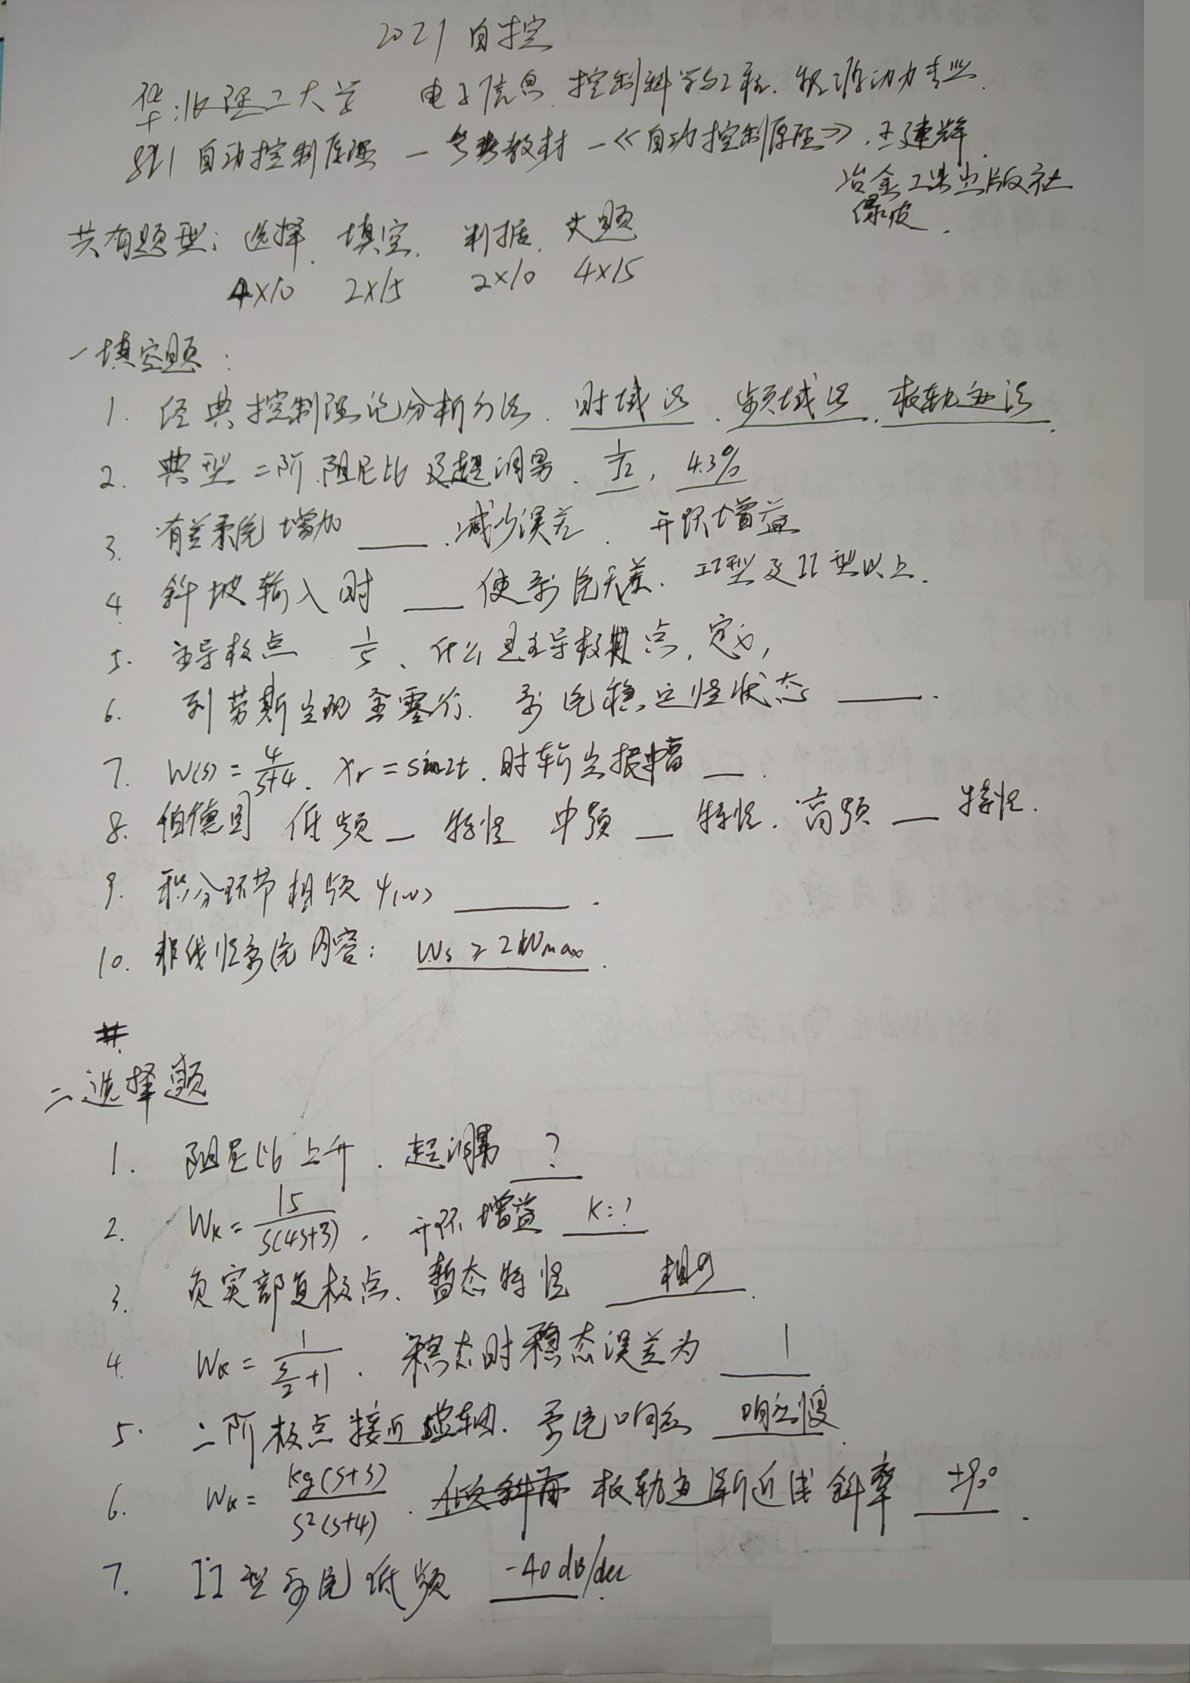 2021 自控
华北理工大学 电子信息、控制科学与工程、能源动力专业.
811 自动控制原理 — 参考教材 —《自动控制原理》. 王建辉.
冶金工业出版社
绿皮.
共有题型: 选择、填空、判据、大题
4×10 2×15 2×10 4×15
一填空题:
1. 经典控制理论分析方法、时域法、频域法、根轨迹法.
2. 典型二阶阻尼比及超调男、1/√2, 4.3%
3. 有差系统增加 ____ 、减少误差、开环增益
4 斜坡输入时 ____ 使系统无差. II型及II型以上.
5. 主导极点 1/5、什么是主导极点, 定义,
6. 列劳斯出现全零行. 系统稳定性状态 ____.
7. W(s) = 4/(s+4). Xr = sin2t. 时输出振幅 __.
8. 伯德图 低频 __ 特性 中频 __ 特性. 高频 __ 特性.
9. 积分环节相频 φ(ω) ____.
10. 非线性系统内容: Ws ≥ 2Wmax.
二选择题
1. 阻尼比上升. 超调男 ?
2. WK = 15/(s(4s+3)), 开环增益 K=?
3. 负实部复极点、暂态特性
4. WK = 1/(s/2+1). 稳态时稳态误差为 1
5. 二阶极点接近虚轴. 系统响应 响应慢
6. WK = kg(s+3)/(s²(s+4)). 根轨迹渐近线斜率 ±90°.
7. II型系统低频 -40dB/dec.